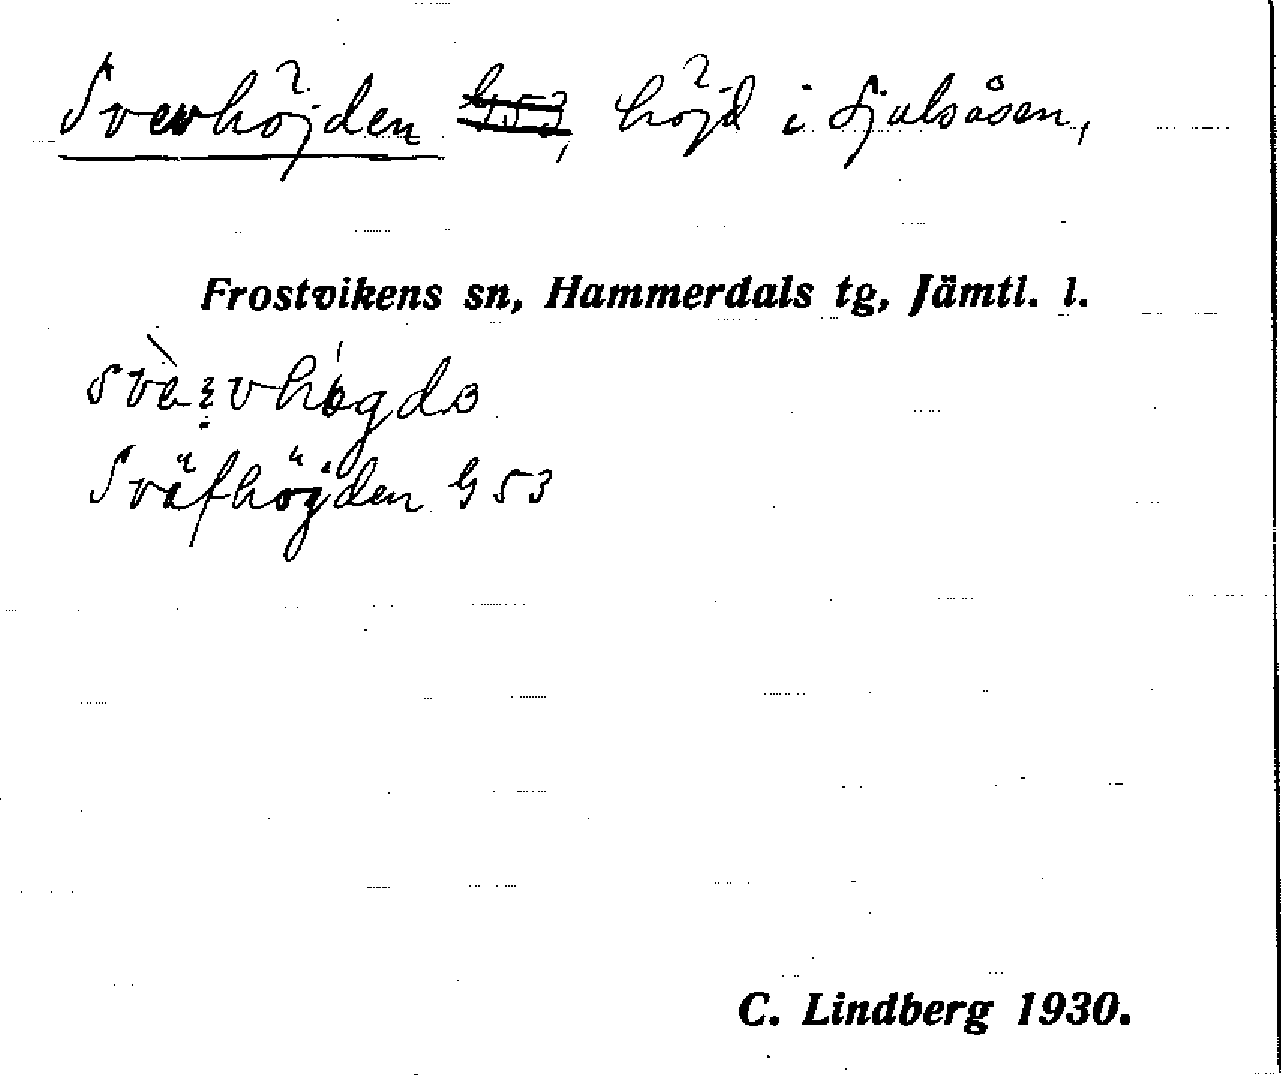 Svevhöjden G 53, höjd i Sjulsåsen,
Frostvikens sn, Hammerdals tg, Jämtl. l.
Sväfhöjden G 53
C. Lindberg 1930.